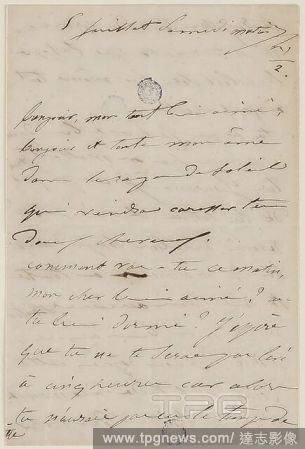 5 juillet samedi matin
Bonjour, mon tout bien aimé,
bonjour et toute mon âme
dans le rayon de soleil
qui viendra caresser tes
doux cheveux.
comment vas-tu ce matin,
mon cher bien aimé ? as-
tu bien dormi ? J'espère
que tu ne te seras pas levé
à cinq heures car alors
tu n'aurais pas eu le temps de
TPG
www.tpgnews.com/ 達志影像